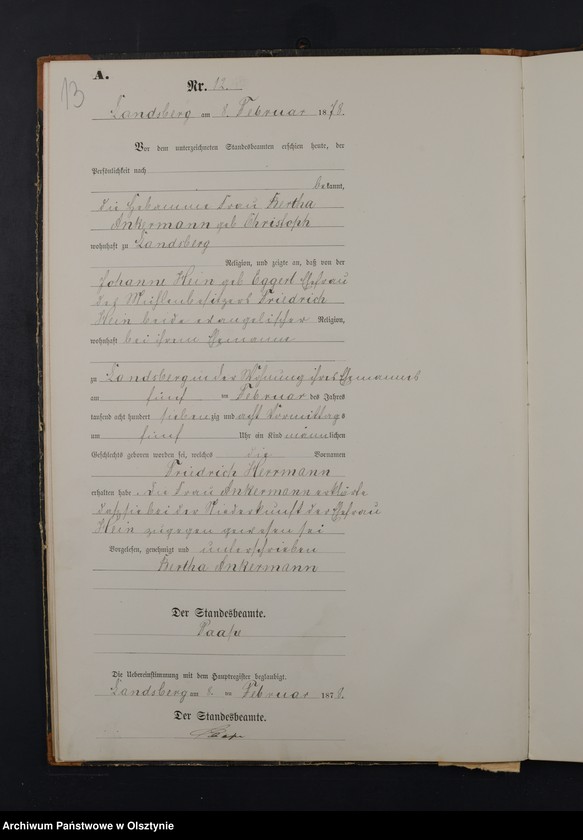 13
A.
Nr. 12.
Landsberg am 8. Februar 1878.
Vor dem unterzeichneten Standesbeamten erschien heute, der
Persönlichkeit nach
bekannt,
die Hebamme Frau Bertha
Ankermann geb Christoph
wohnhaft zu Landsberg
Religion, und zeigte an, daß von der
Johanne Hein geb Eggert Ehefrau
des Mühlenbesitzers Friedrich
Hein beide evangelischer Religion,
wohnhaft bei ihrem Ehemanne
zu Landsberg in der Wohnung ihres Ehemannes
am fünf ten Februar des Jahres
tausend acht hundert siebenzig und acht Vormittags
um fünf Uhr ein Kind männlichen
Geschlechts geboren worden sei, welches die Vornamen
Friedrich Herrmann
erhalten habe. Die Frau Ankermann erklärte
daß sie bei der Niederkunft der Ehefrau
Hein zugegen gewesen sei
Vorgelesen, genehmigt und unterschrieben
Bertha Ankermann
Der Standesbeamte.
Die Uebereinstimmung mit dem Hauptregister beglaubigt.
Landsberg am 8. ten Februar 1878.
Der Standesbeamte.
Archiwum Państwowe w Olsztynie